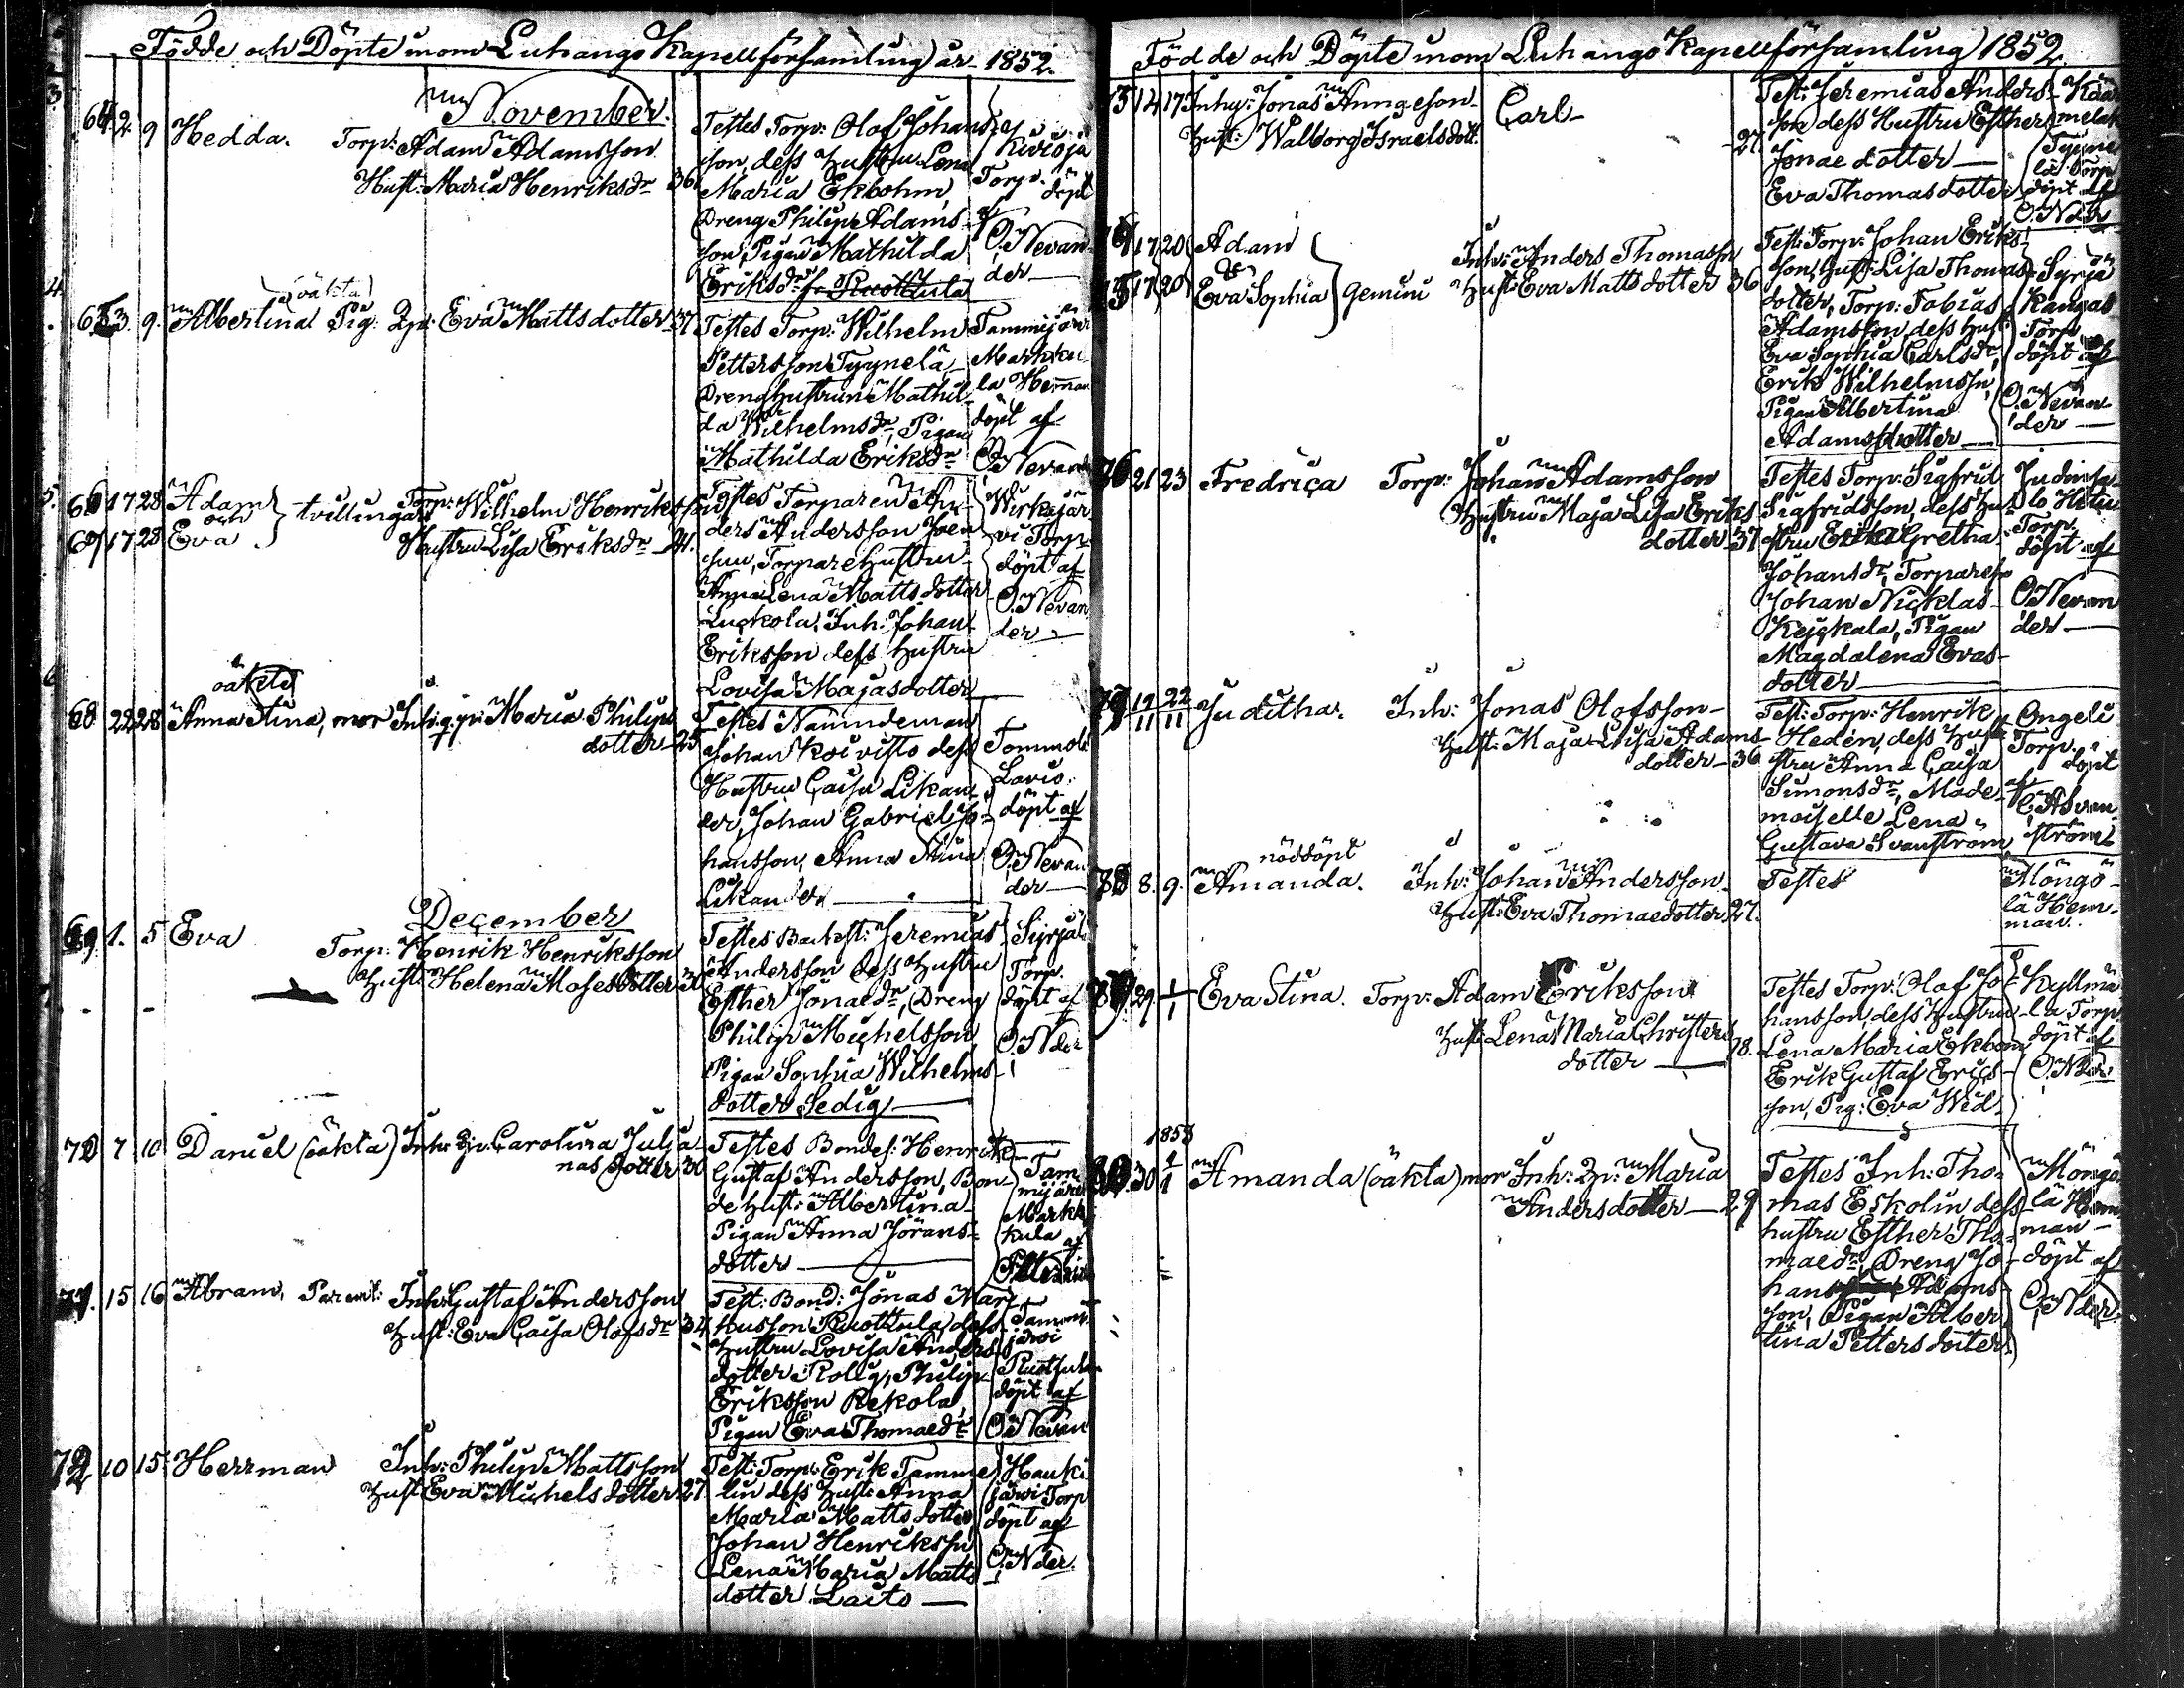 Födde och Döpte inom Luhango Kapellförsamling år 1852.
November.
64 2 9 Hedda. Torp: Adam Adamsson
Hust: Maria Henriksdr 36
Testes Torp: Olof Johans-
son, dess hustru Lena
Maria Ekbohm,
Dreng Philip Adams-
son, Pigan Mathilda
Eriksdr fr Ruottula
Kivioja
Torp.
döpt
af
O. Nevan-
der
(oäkta)
65 3. 9. Albertina Pig: Eva Mattsdotter 37
Testes Torp: Wilhelm
Pettersson Tyynelä,
Drenghustrun Mathil-
da Wilhelmsdr, Pigan
Mathilda Eriksdr
Tammijärvi
Markku
la Heman
döpt af
O. Nevander
66 17 28 Adam
och
67 17 28 Eva
tvillingar
Torp: Wilhelm Henriksson
Hustru Lisa Eriksdr 41.
Testes Torparen An-
ders Andersson
Torparehustru
Anna Lena Mattsdotter
Luckola, Inh: Johan
Eriksson dess hustru
Lovisa Majasdotter
Wirkejär-
vi Torp
döpt af
O. Nevan
der
oäkta
68 22 28 Anna Stina, mor Inh: q.p. Maria Philips
dotter 25
Testes Nämndeman
Johan Koivisto dess
Hustru Caisa Likan-
der, Johan Gabriel Jo-
hansson, Anna Stina
Likander
Tommola
Lavis.
döpt af
O. Nevan
der
December
69 1. 5 Eva
Torp: Henrik Henriksson
Hust: Helena Mosesdotter
Testes Jeremias
Andersson dess hustru
Esther Jonaedr, Dreng
Philip Michelsson,
Pigan Sophia Wilhelms-
dotter Ledig
Syrjälä
Torp.
döpt af
O. Nder
70 7 10 Daniel (oäkta) Inh: Qp: Carolina Julia
nas dotter 30
Testes Bondes: Henrik
Gustaf Andersson, Bon-
de hust: Albertina
Pigan Anna Jörans-
dotter
Tam
mijärvi
Markk
kula
af
71. 15 16 Abram, Parent: Inh: Gustaf Andersson
Hust: Eva Caisa Olofsdr 34
Test: Bond: Jonas Mar-
kusson Ruottula, dess
hustru Lovisa Anders
dotter Philip
Eriksson Rekola
Pigan Eva Thomaedr
Tammi
järvi
Ruottula
döpt af
O. Nevan
72 10 15 Herrman Inh: Philip Mattsson
Hust: Eva Michelsdotter 27
Test: Torp: Erik Tamme
lin dess hust: Anna
Maria Mattsdotter
Johan Henriksson
Lena Maria Matts
dotter Laito
Hauki
järvi Torp
döpt af
O. Nder.
Födde och Döpte inom Luhango Kapellförsamling 1852
14 17 Inhys: Jonas Anngeson
Hust: Walborg Israelsdott.
Carl
27
Test: Jeremias Anders-
son dess Hustru Esther
Jonae dotter
Eva Thomasdotter
Tyyne
lä Torp
döpt af
O. Nder
17 20 Adam
&
17 20 Eva Sophia
Gemini
Inh: Anders Thomasson
Hust: Eva Mattsdotter 36
Test: Torp: Johan Eriks-
son, hust: Lisa Thomas
dotter, Torp: Tobias
Adamsson, dess hus:
Eva Sophia Carlsdr,
Erik Wilhelmsson,
Pigan Albertina
Adamsdotter
Syrjä
Kangas
Torp
döpt af
O. Nevan
der
76 21 23 Fredrica Torp: Johan Adamsson
Hustru Maja Lisa Eriks
dotter 37
Testes Torp: Sigfrid
Sigfridsson, dess hu-
stru Erika Gretha
Johansdr, Torpare
Johan Nicklas
Kejckala, Pigan
Magdalena Evas-
dotter
Judinsa
lo
Torp.
döpt af
O. Nevan
der
77 19/11 22/11 Juditha. Inh: Jonas Olofsson
Hust: Maja Lisa Adams-
dotter 36
Test: Torp: Henrik
Hedén, dess hu-
stru Anna Caisa
Simonsdr, Made-
moiselle Lena
Gustava Svanström
Ongeli
Torp.
döpt
af
Svan-
ström
nöddöpt
78 8. 9. Amanda. Inh: Johan Andersson
Hust: Eva Thomaedotter 27.
Testes
Möngö-
lä Hem-
man.
79 29 1/1 Eva Stina. Torp: Adam Eriksson
Hust: Lena Maria Christers
dotter 28.
Testes Torp: Olof Jo-
hansson, dess hustru
Lena Maria Ekbom
Erik Gustaf Erics-
son, Pig: Eva Wid
Kyllmä
la Torp
döpt af
O. Nder
1853
80. 30 1/1 Amanda (oäkta) mor Inh: Qp: Maria
Andersdotter 29
Testes Inh: Tho-
mas Eskolin dess
hustru Esther Tho-
maedr, Dreng Jo-
hans Adams-
son, Pigan Alber
tina Pettersdotter
Möngö
lä Hem
man
döpt af
O. Nder